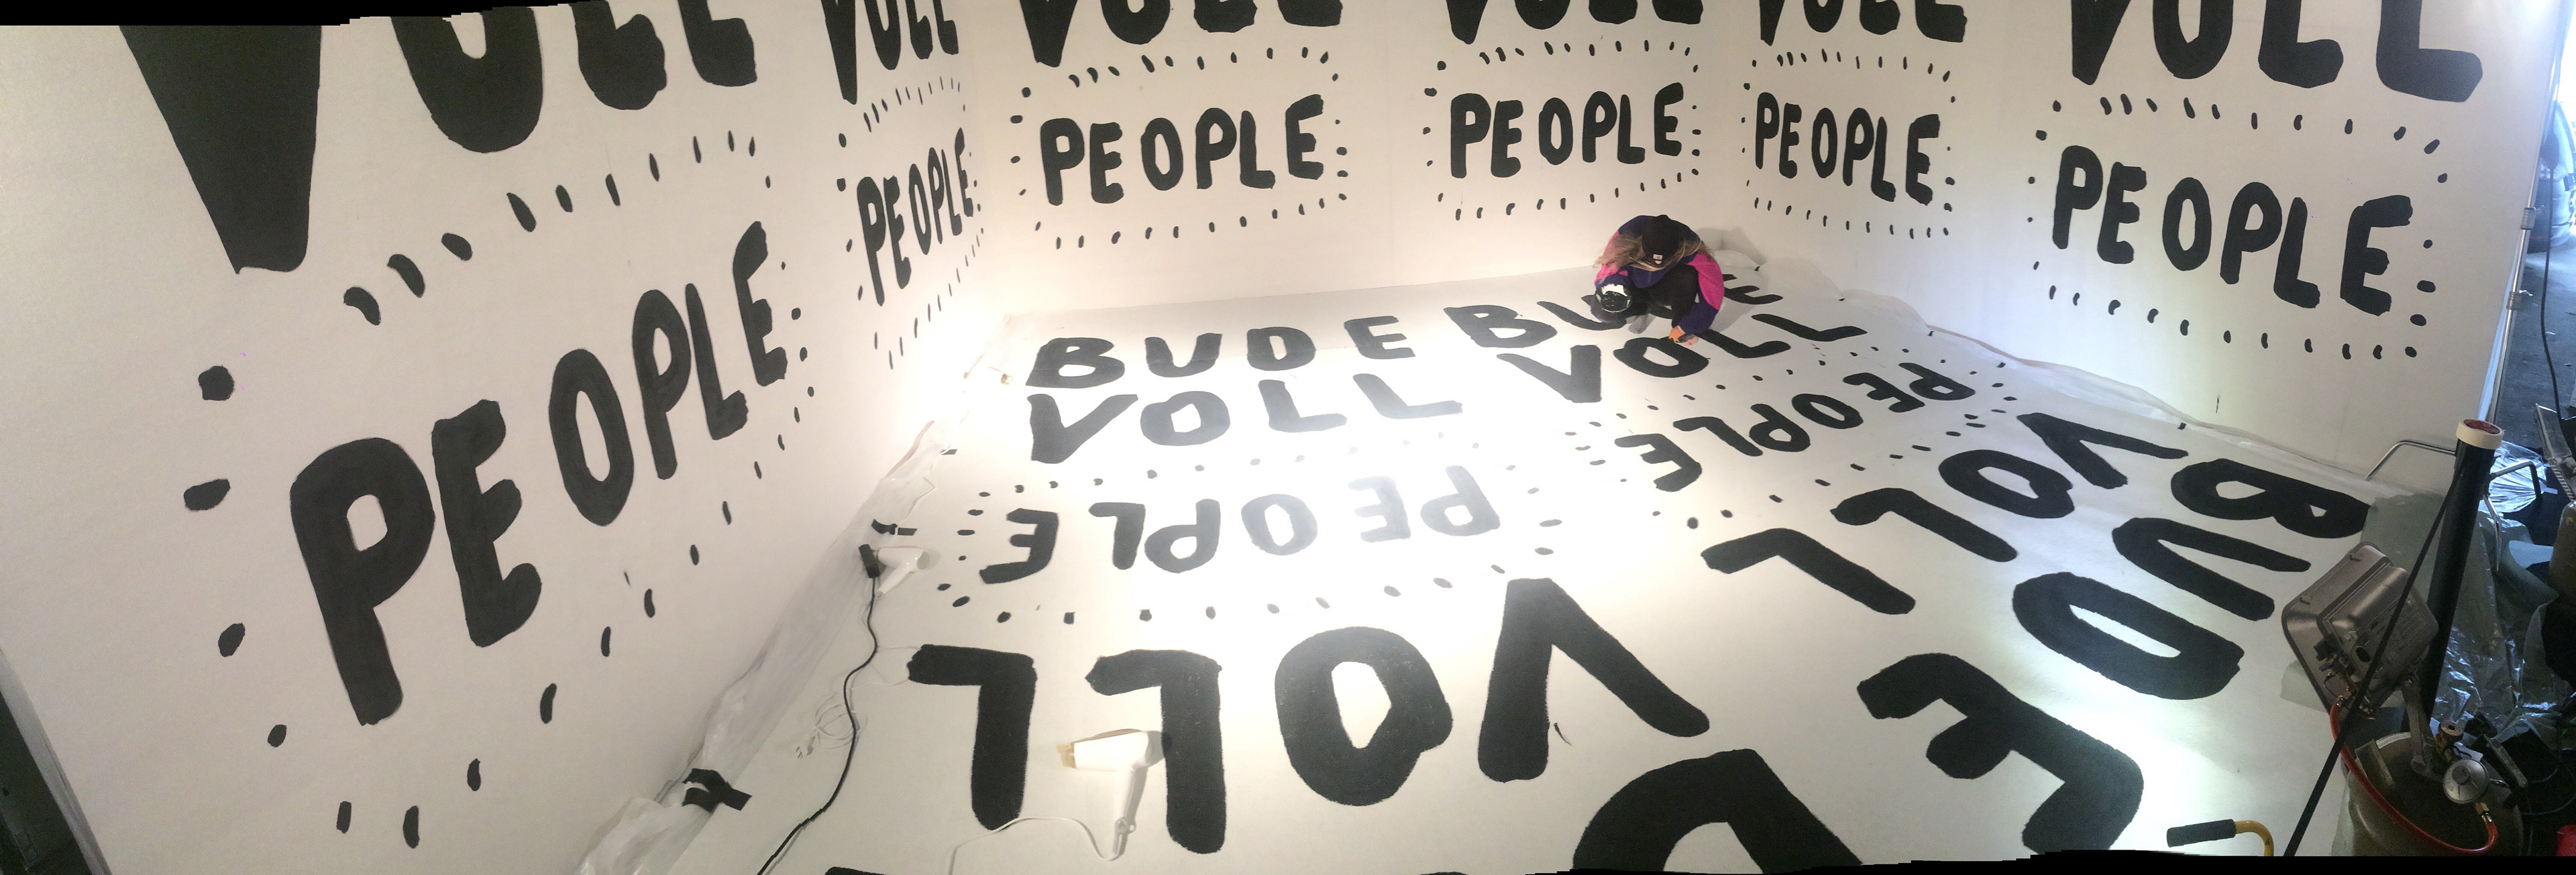 VOLL
PEOPLE
VOLL
PEOPLE
VOLL
PEOPLE
VOLL
PEOPLE
VOLL
PEOPLE
VOLL
PEOPLE
BUDE
VOLL
PEOPLE
VOLL
VOLL
PEOPLE
VOLL
BUDE